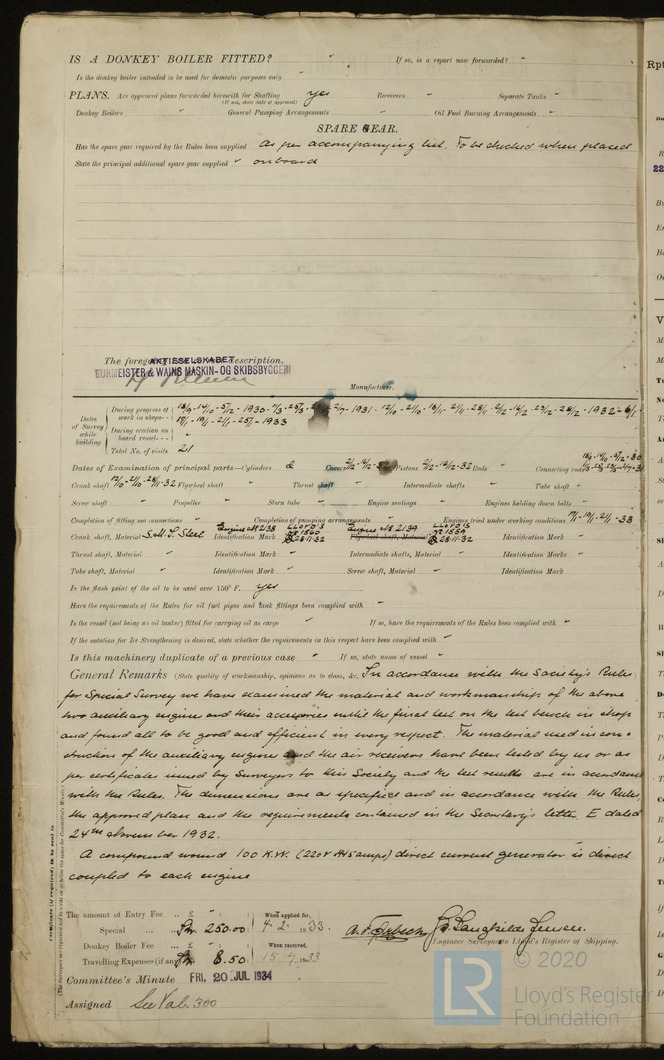 IS A DONKEY BOILER FITTED? " If so, is a report now forwarded? "
Is the donkey boiler intended to be used for domestic purposes only "
PLANS. Are approved plans forwarded herewith for Shafting yes Receivers " Separate Tanks "
(If not, state date of approval)
Donkey Boilers " General Pumping Arrangements " Oil Fuel Burning Arrangements "
SPARE GEAR.
Has the spare gear required by the Rules been supplied as per accompanying list. To be checked when placed
State the principal additional spare gear supplied " onboard
The foregoing description,
AKTIESELSKABET
BURMEISTER & WAINS MASKIN- OG SKIBSBYGGERI
Manufacturer.
Dates of Survey while building
During progress of work in shops - - 1930 1931 1932
During erection on board vessel - - - 1933
Total No. of visits 21
Dates of Examination of principal parts—Cylinders Covers Pistons 2/12-16/12-32 Rods " Connecting rods
Crank shaft 12/10-21/10-28/11-32 Flywheel shaft " Thrust shaft " Intermediate shafts " Tube shaft "
Screw shaft " Propeller " Stern tube " Engine seatings " Engines holding down bolts "
Completion of fitting sea connections " Completion of pumping arrangements " Engines tried under working conditions 17/1-19/1-21/1-33
Crank shaft, Material S.M.I. Steel Identification Mark Engine No 2138 LLOYD'S No 1560 28.11.32 Engine No 2139 Flywheel shaft, Material LLOYD'S No 1559 28.11.32 Identification Marks "
Thrust shaft, Material " Identification Mark " Intermediate shafts, Material " Identification Marks "
Tube shaft, Material " Identification Mark " Screw shaft, Material " Identification Mark "
Is the flash point of the oil to be used over 150° F. yes
Have the requirements of the Rules for oil fuel pipes and tank fittings been complied with "
Is the vessel (not being an oil tanker) fitted for carrying oil as cargo " If so, have the requirements of the Rules been complied with "
If the notation for Ice Strengthening is desired, state whether the requirements in this respect have been complied with "
Is this machinery duplicate of a previous case " If so, state name of vessel "
General Remarks (State quality of workmanship, opinions as to class, &c. In accordance with the Society's Rules
for Special Survey we have examined the material and workmanship of the above
two auxiliary engine and their accessories until the final test on the test bench in shop
and found all to be good and efficient in every respect. The material used in con-
struction of the auxiliary engine and the air receivers have been tested by us or as
per certificates issued by Surveyors to this Society and the test results are in accordance
with the Rules. The dimensions are as specified and in accordance with the Rules,
the approved plan and the requirements contained in the Secretary's letter. E dated
24th November 1932.
A compound wound 100 K.W. (220V 445 amps) direct current generator is direct
coupled to each engine
The amount of Entry Fee .. £ " : :
Special ... £ Kr. 250.00 : When applied for, 4.2. 1933.
Donkey Boiler Fee ... £ " : :
Travelling Expenses (if any) £ Kr. 8.50 : When received, 15.4.1933
Engineer Surveyor to Lloyd's Register of Shipping.
Committee's Minute FRI. 20 JUL 1934
Assigned See Vab. 300
© 2020
LR
Lloyd's Register
Foundation